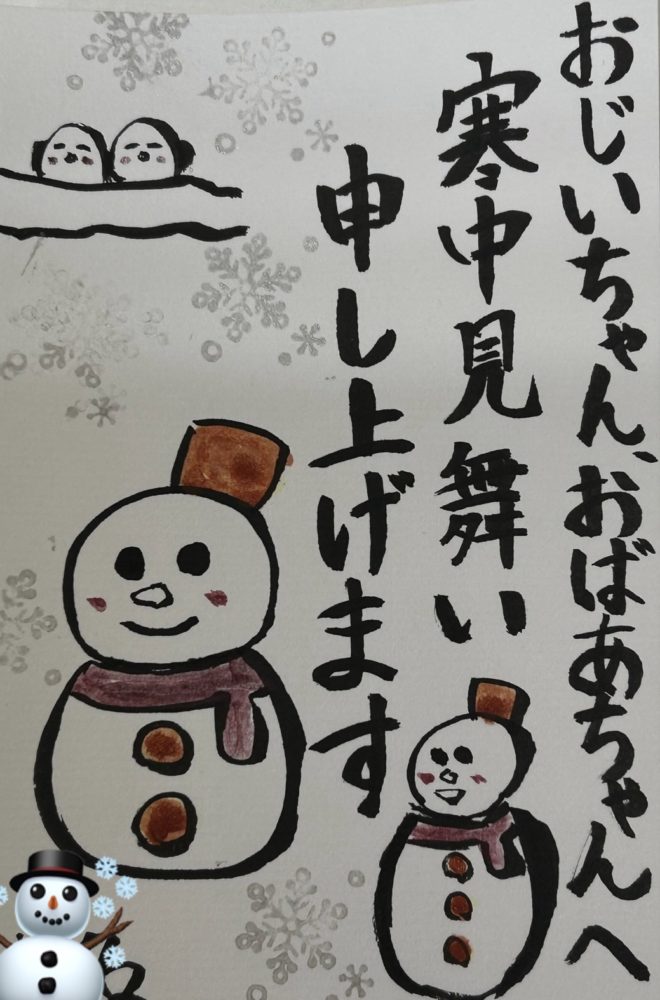 おじいちゃん、おばあちゃんへ
寒中見舞い
申し上げます